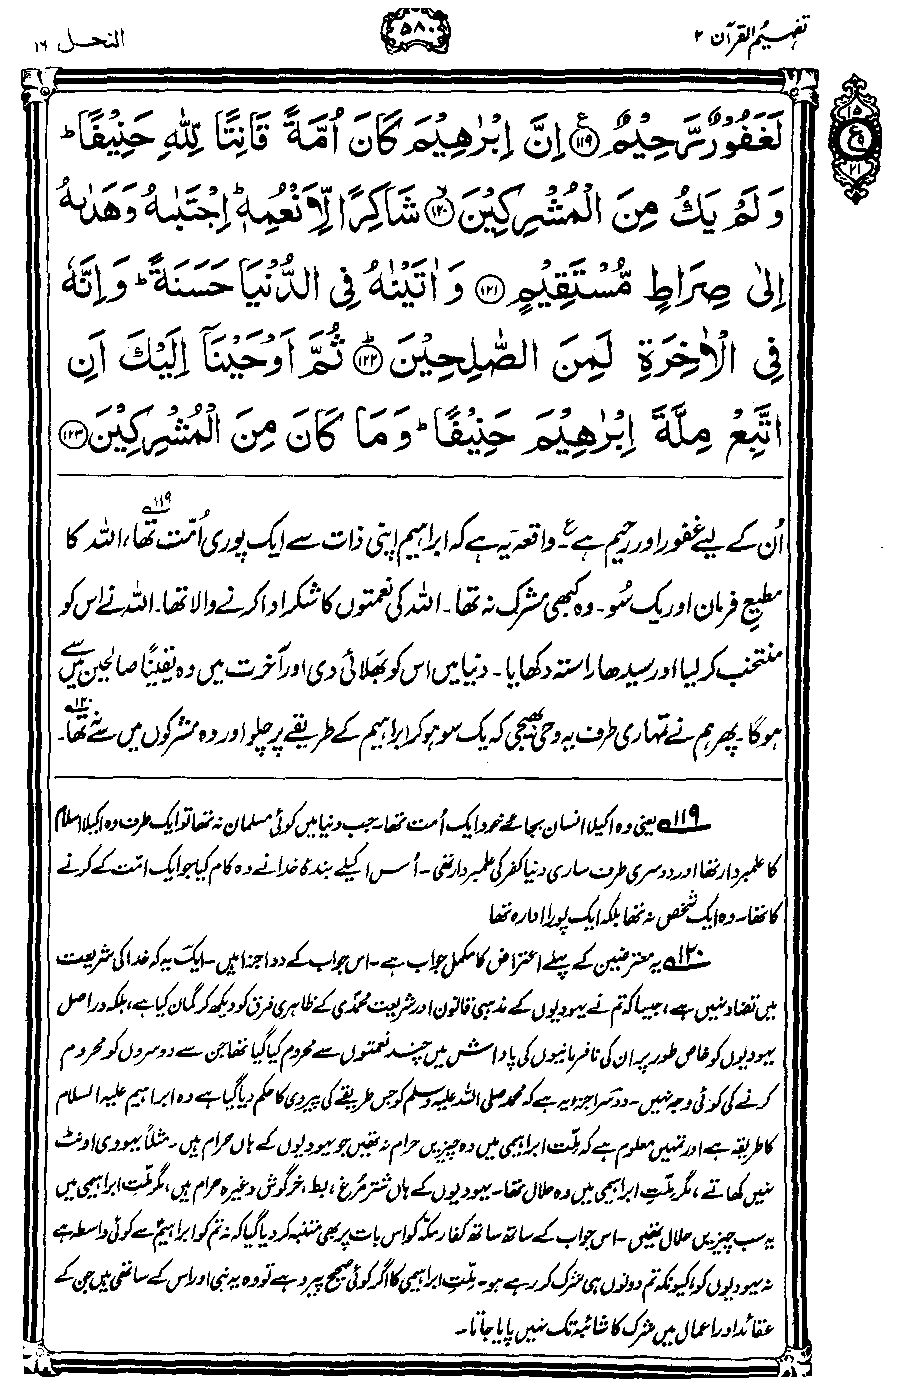 تفہیم القرآن ۲
۵۸۰
النحل ۱۶
لَغَفُوْرٌ رَّحِيْمٌ ﴿۱۱۹﴾ ع اِنَّ اِبْرٰهِيْمَ كَانَ اُمَّةً قَانِتًا لِّلّٰهِ حَنِيْفًا ؕ
وَلَمْ يَكُ مِنَ الْمُشْرِكِيْنَ ﴿۱۲۰﴾ شَاكِرًا لِّاَنْعُمِهٖ ؕ اِجْتَبٰىهُ وَهَدٰىهُ
اِلٰى صِرَاطٍ مُّسْتَقِيْمٍ ﴿۱۲۱﴾ وَاٰتَيْنٰهُ فِى الدُّنْيَا حَسَنَةً ؕ وَاِنَّهٗ
فِى الْاٰخِرَةِ لَمِنَ الصّٰلِحِيْنَ ﴿۱۲۲﴾ ؕ ثُمَّ اَوْحَيْنَآ اِلَيْكَ اَنِ
اتَّبِعْ مِلَّةَ اِبْرٰهِيْمَ حَنِيْفًا ؕ وَمَا كَانَ مِنَ الْمُشْرِكِيْنَ ﴿۱۲۳﴾
۵
ع
۹
۲۱
اُن کے لیے غفور اور رحیم ہے۔ ع واقعہ یہ ہے کہ ابراہیم اپنی ذات سے ایک پوری اُمّت تھا۱۱۹، اللہ کا
مطیعِ فرمان اور یک سُو۔ وہ کبھی مشرک نہ تھا۔ اللہ کی نعمتوں کا شکر ادا کرنے والا تھا۔ اللہ نے اس کو
منتخب کر لیا اور سیدھا راستہ دکھایا۔ دنیا میں اس کو بھلائی دی اور آخرت میں وہ یقیناً صالحین میں سے
ہوگا۔ پھر ہم نے تمہاری طرف یہ وحی بھیجی کہ یک سو ہو کر ابراہیم کے طریقے پر چلو اور وہ مشرکوں میں سے نہ تھا۱۲۰۔
۱۱۹ یعنی وہ اکیلا انسان بجائے خود ایک اُمت تھا۔ جب دنیا میں کوئی مسلمان نہ تھا تو ایک طرف وہ اکیلا اسلام
کا علمبردار تھا اور دوسری طرف ساری دنیا کفر کی علمبردار تھی۔ اُس اکیلے بندۂ خدا نے وہ کام کیا جو ایک امت کے کرنے
کا تھا۔ وہ ایک شخص نہ تھا بلکہ ایک پورا ادارہ تھا
۱۲۰ یہ معترضین کے پہلے اعتراض کا مکمل جواب ہے۔ اس جواب کے دو اجزا ہیں۔ ایک یہ کہ خدا کی شریعت
میں تضاد نہیں ہے، جیسا کہ تم نے یہودیوں کے مذہبی قانون اور شریعتِ محمدی کے ظاہری فرق کو دیکھ کر گمان کیا ہے، بلکہ دراصل
یہودیوں کو خاص طور پر ان کی نافرمانیوں کی پاداش میں چند نعمتوں سے محروم کیا گیا تھا جن سے دوسروں کو محروم
کرنے کی کوئی وجہ نہیں۔ دوسرا جزو یہ ہے کہ محمد صلی اللہ علیہ وسلم کو جس طریقے کی پیروی کا حکم دیا گیا ہے وہ ابراہیم علیہ السلام
کا طریقہ ہے اور تمہیں معلوم ہے کہ ملّت ابراہیمی میں وہ چیزیں حرام نہ تھیں جو یہودیوں کے ہاں حرام ہیں۔ مثلاً یہودی اونٹ
نہیں کھاتے، مگر ملّتِ ابراہیمی میں وہ حلال تھا۔ یہودیوں کے ہاں شتر مرغ، بط، خرگوش وغیرہ حرام ہیں، مگر ملّتِ ابراہیمی میں
یہ سب چیزیں حلال تھیں۔ اس جواب کے ساتھ ساتھ کفارِ مکہ کو اس بات پر بھی متنبہ کر دیا گیا کہ نہ تم کو ابراہیمؑ سے کوئی واسطہ ہے
نہ یہودیوں کو، کیونکہ تم دونوں ہی شرک کر رہے ہو۔ ملّتِ ابراہیمی کا اگر کوئی صحیح پیرو ہے تو وہ یہ نبی اور اس کے ساتھی ہیں جن کے
عقائد اور اعمال میں شرک کا شائبہ تک نہیں پایا جاتا۔